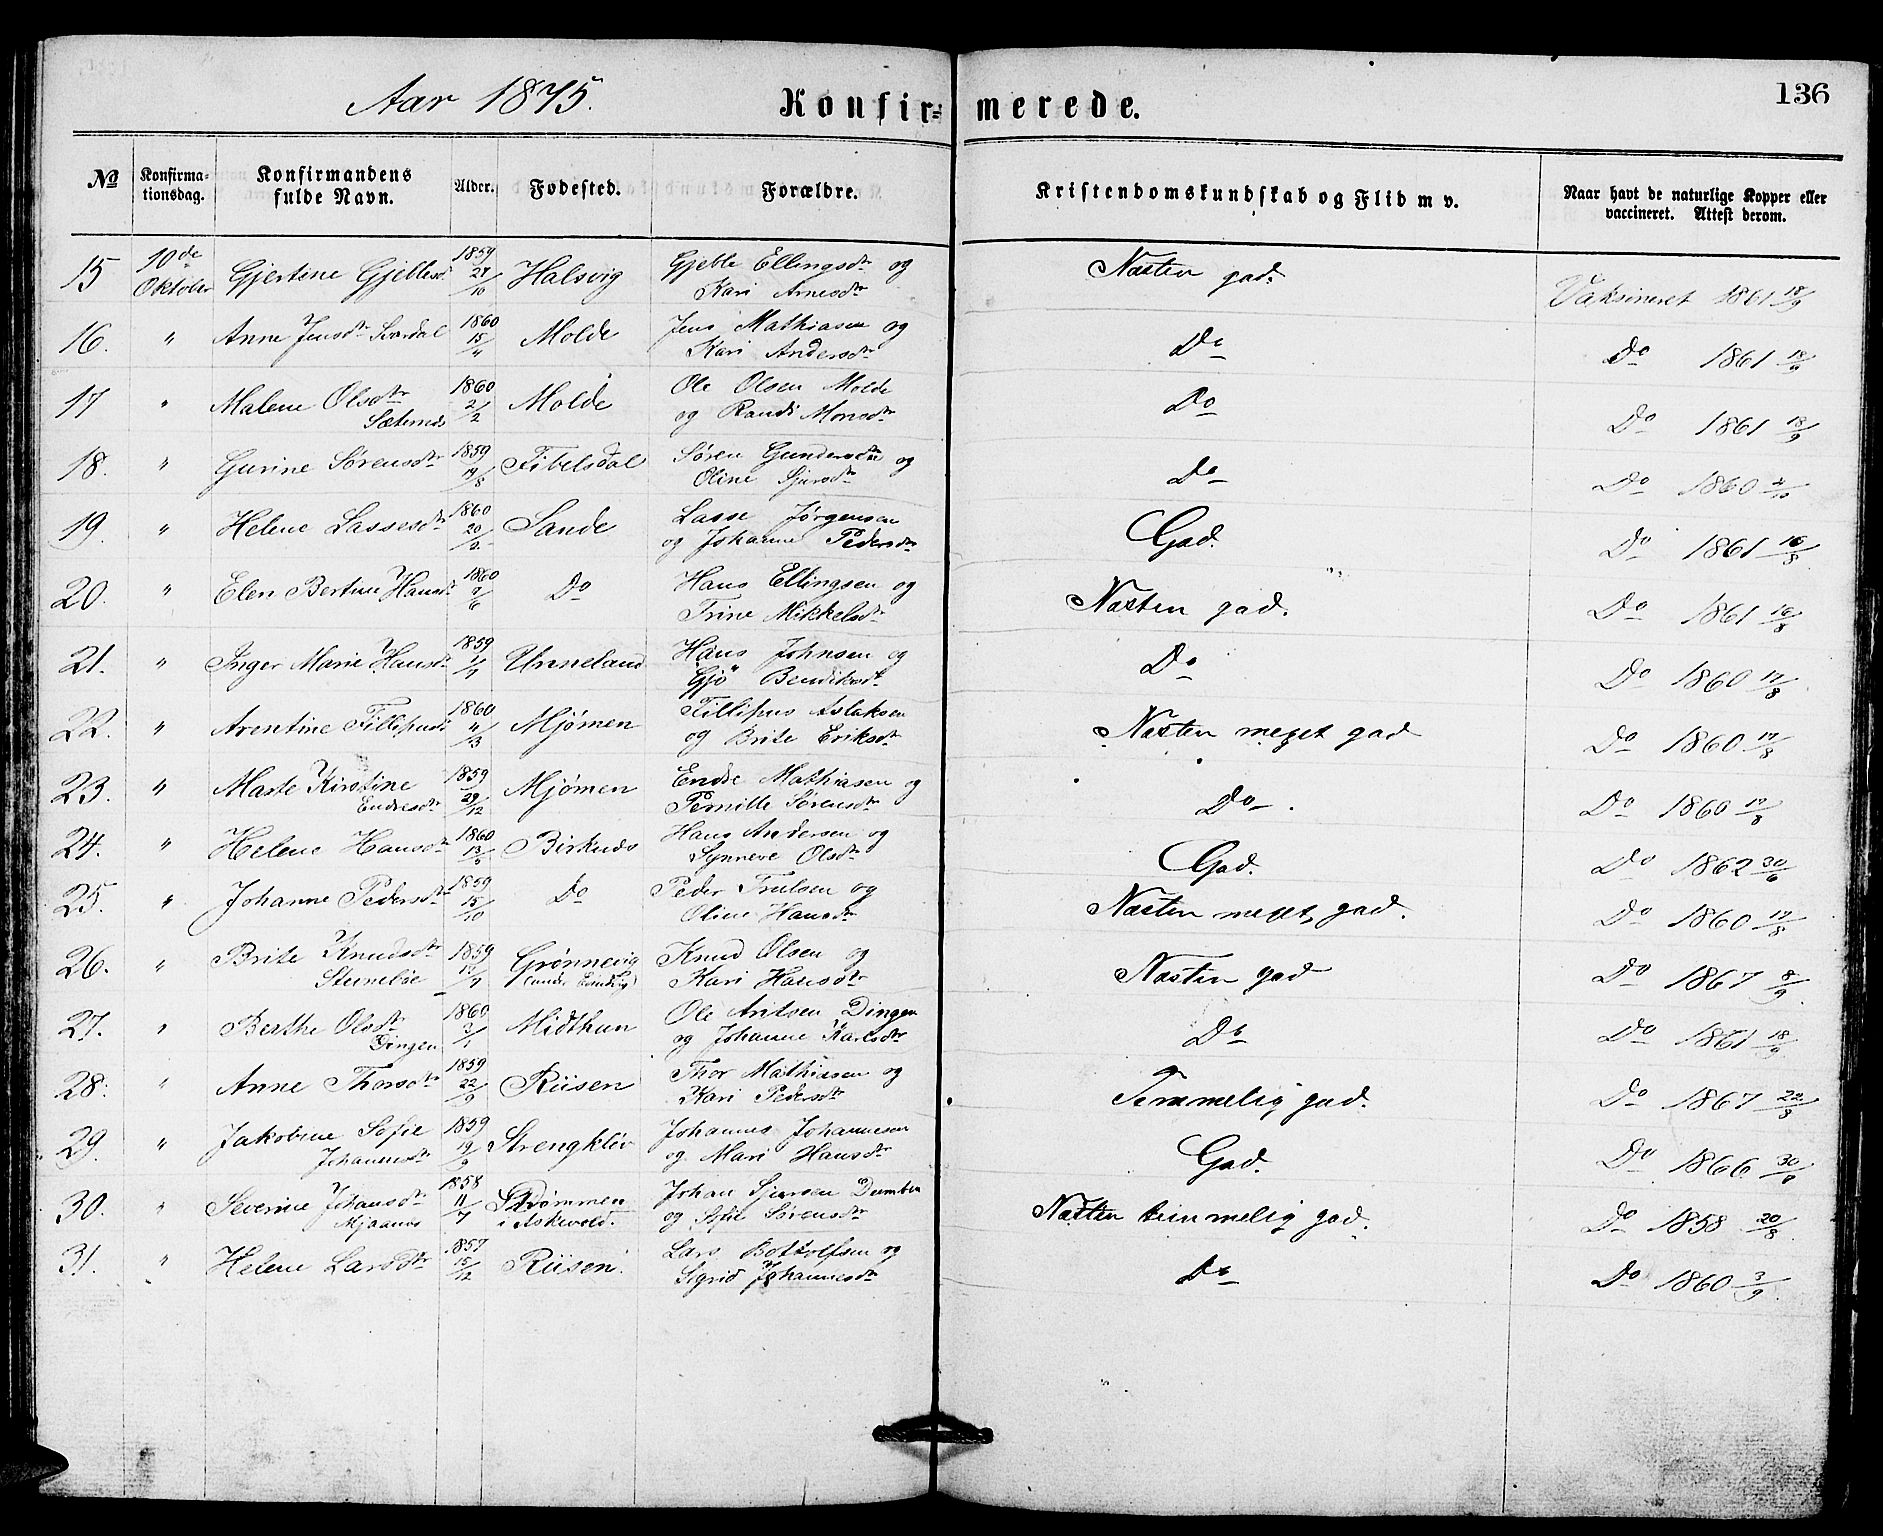 Aar 1875.
Konfirmerede.
136
No
Konfirmationsdag.
Konfirmandens fulde Navn.
Alder.
Fødested.
Forældre.
Kristendomskundskab og Flid m v.
Naar havt de naturlige Kopper eller vaccineret. Attest derom.
15 10de Oktober Gjertine Gjeblesd 1859 /10 Halsvig Gjeble Ellingsdr og Kari Arnesdr Næsten god. Vaksineret 1861 18/9
16. " Anne Jensdr Svardal 1860 15/ Molde Jens Mathiasen og Kari Andersdr Do Do 1861 18/9
17 " Malene Olsdr 1860 2/2 Molde Ole Olsen Molde og Randi Monsdr Do Do 1861 18/9
18. " Gurine Sørensdr 1859 19/8 Fibelsdal Søren Gundersdr og Oline Sjursdr Do Do 1860 2/10
19. " Helene Lassesdr 1860 20/2 Sande Lasse Jørgensen og Johanne Pedersdr God. Do 1861 16/8
20. " Elen Bertine Hansdr 1860 9/6 Do Hans Ellingsen og Trine Mikkelsdr Næsten god. Do 1861 16/8
21. " Inger Marie Hansdr 1859 Unneland Hans Johnsen og Gjø Bendiksdr Do Do 1860 17/8
22. " Arentine Fillipusd 1860 11/3 Mjømen Fillipus Aslaksen og Brite Eriksdr Næsten meget god Do 1860 17/8
23. " Marte Kirstine Endresdr 1859 29/12 Mjømen Endre Mathiasen og Pernille Sørensdr Do. Do 1860 17/8
24. " Helene Hansdr 1860 13/5 Birknes Hans Andersen og Synneve Olsdr God. Do 1862 30/6
25. " Johanne Pedersdr 1859 15/10 Do Peder Trulsen og Oline Hansdr Næsten meget god. Do 1860 17/8
26. " Brite Knudsdr Steinebøe 1859 Grønnevig (under ) Knud Olsen og Kari Hansdr Næsten god Do 1867 8/9
27. " Berthe Olsdr Dingen 1860 2/1 Midthun Ole Antsen Dingen og Johanne Karlsdr Do Do 1861 18/9
28. " Anne Thorsdr 1859 22/9 Riisen Thor Mathiasen og Kari Pedersdr Temmelig god. Do 1867 22/8
29. " Jakobine Sofie Johannesdr 1859 19/9 Strengkløv Johannes Johannesen og Mari Hansdr God. Do 1866 30/
30. " Severine Johansdr Mjaanes 1858 11/7 Strømmen i Askevold. Johan Sjursen Dumben og Sofie Sørensdr Næsten temmelig god. Do 1858 20/8
31. " Helene Larsdr 1857 15/12 Riisen Lars Bottolfsen og Sigrid Johannesdr Do Do 1860 3/9